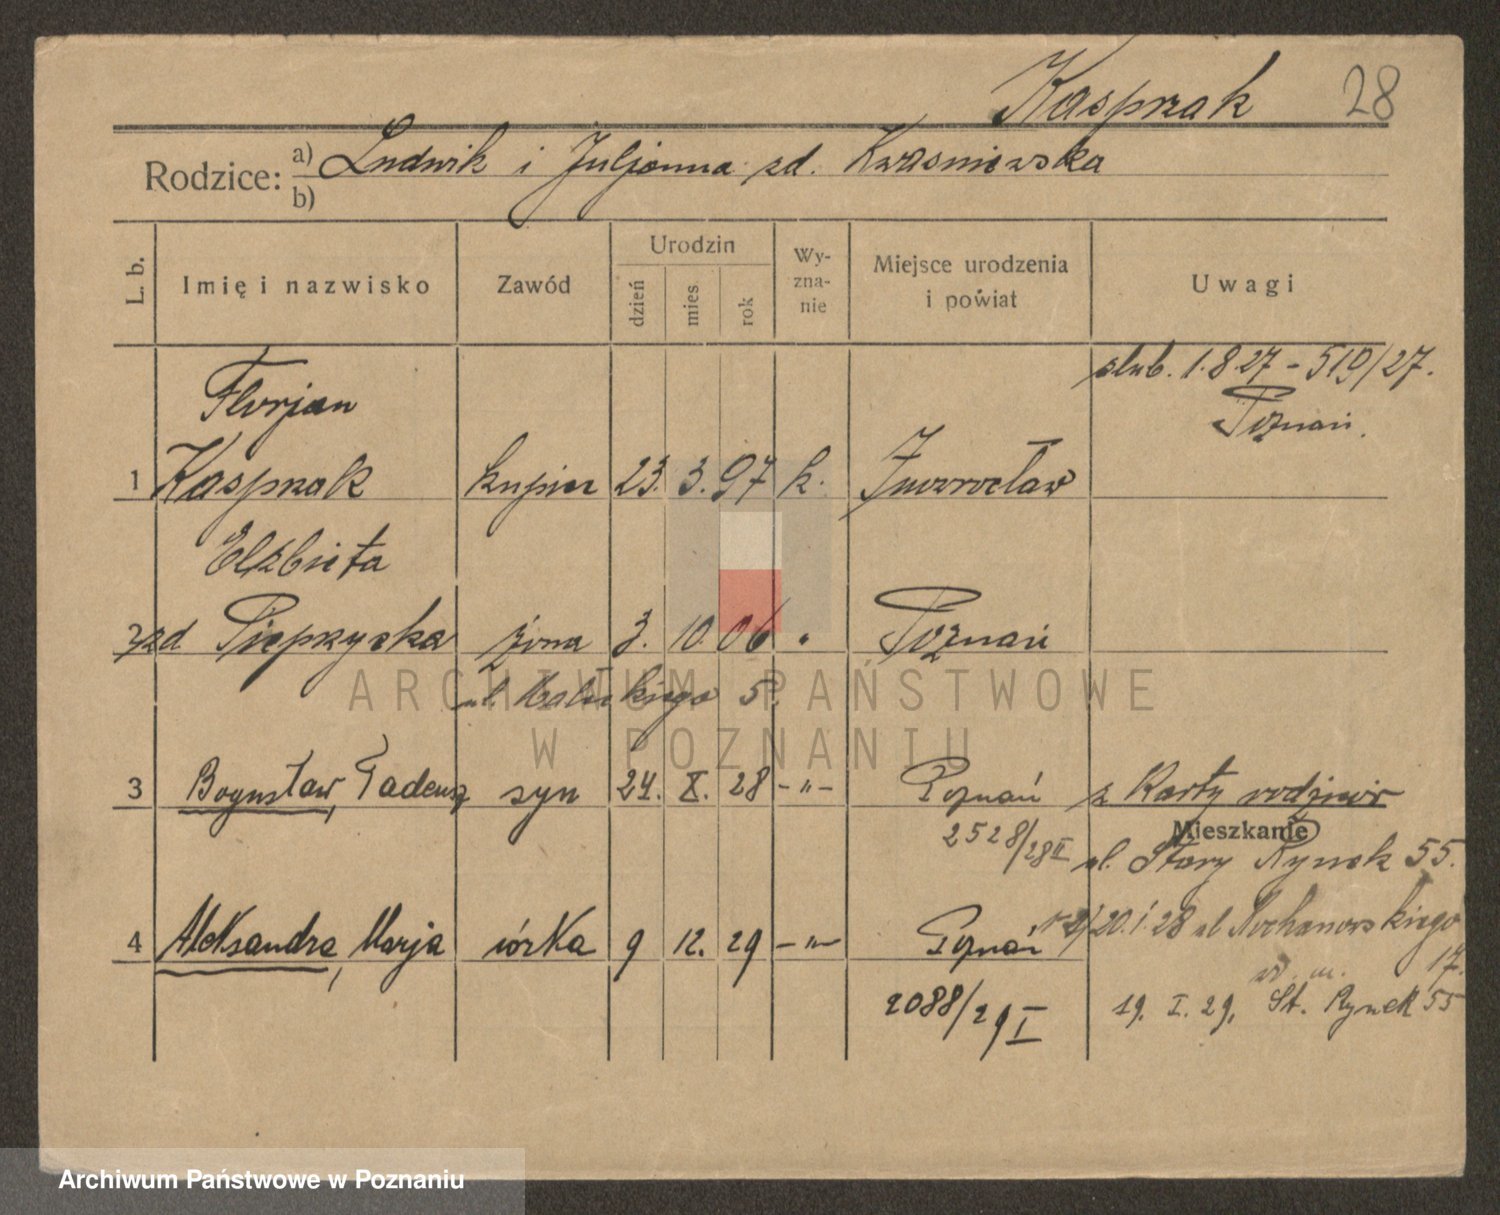 Kasprzak 28
Rodzice: a) Ludwik i Juljanna zd. Kwasniewska
b)
L. b. Imię i nazwisko Zawód Urodzin dzień mies rok Wy-zna-nie Miejsce urodzenia i powiat Uwagi
ślub. 1.8.27 - 519/27.
Florjan Poznań.
1 Kasprzak kupiec 23. 3. 97 k. Inowrocław
Elżbieta
2 zd żona 3. 10. 06 " Poznań
ARCHIWUM PAŃSTWOWE
ul. 5.
W POZNANIU
3 Bogusław, Tadeusz syn 24. X. 28 -"- Poznań z Karty rodziców
2528/28 II Mieszkanie
ul. Stary Rynek 55.
20.1.28 ul Kochanowskiego
4 Aleksandra, Marja córka 9 12. 29 -"- Poznań 17.
w. m.
2088/29 I 19. I. 29, St. Rynek 55
Archiwum Państwowe w Poznaniu